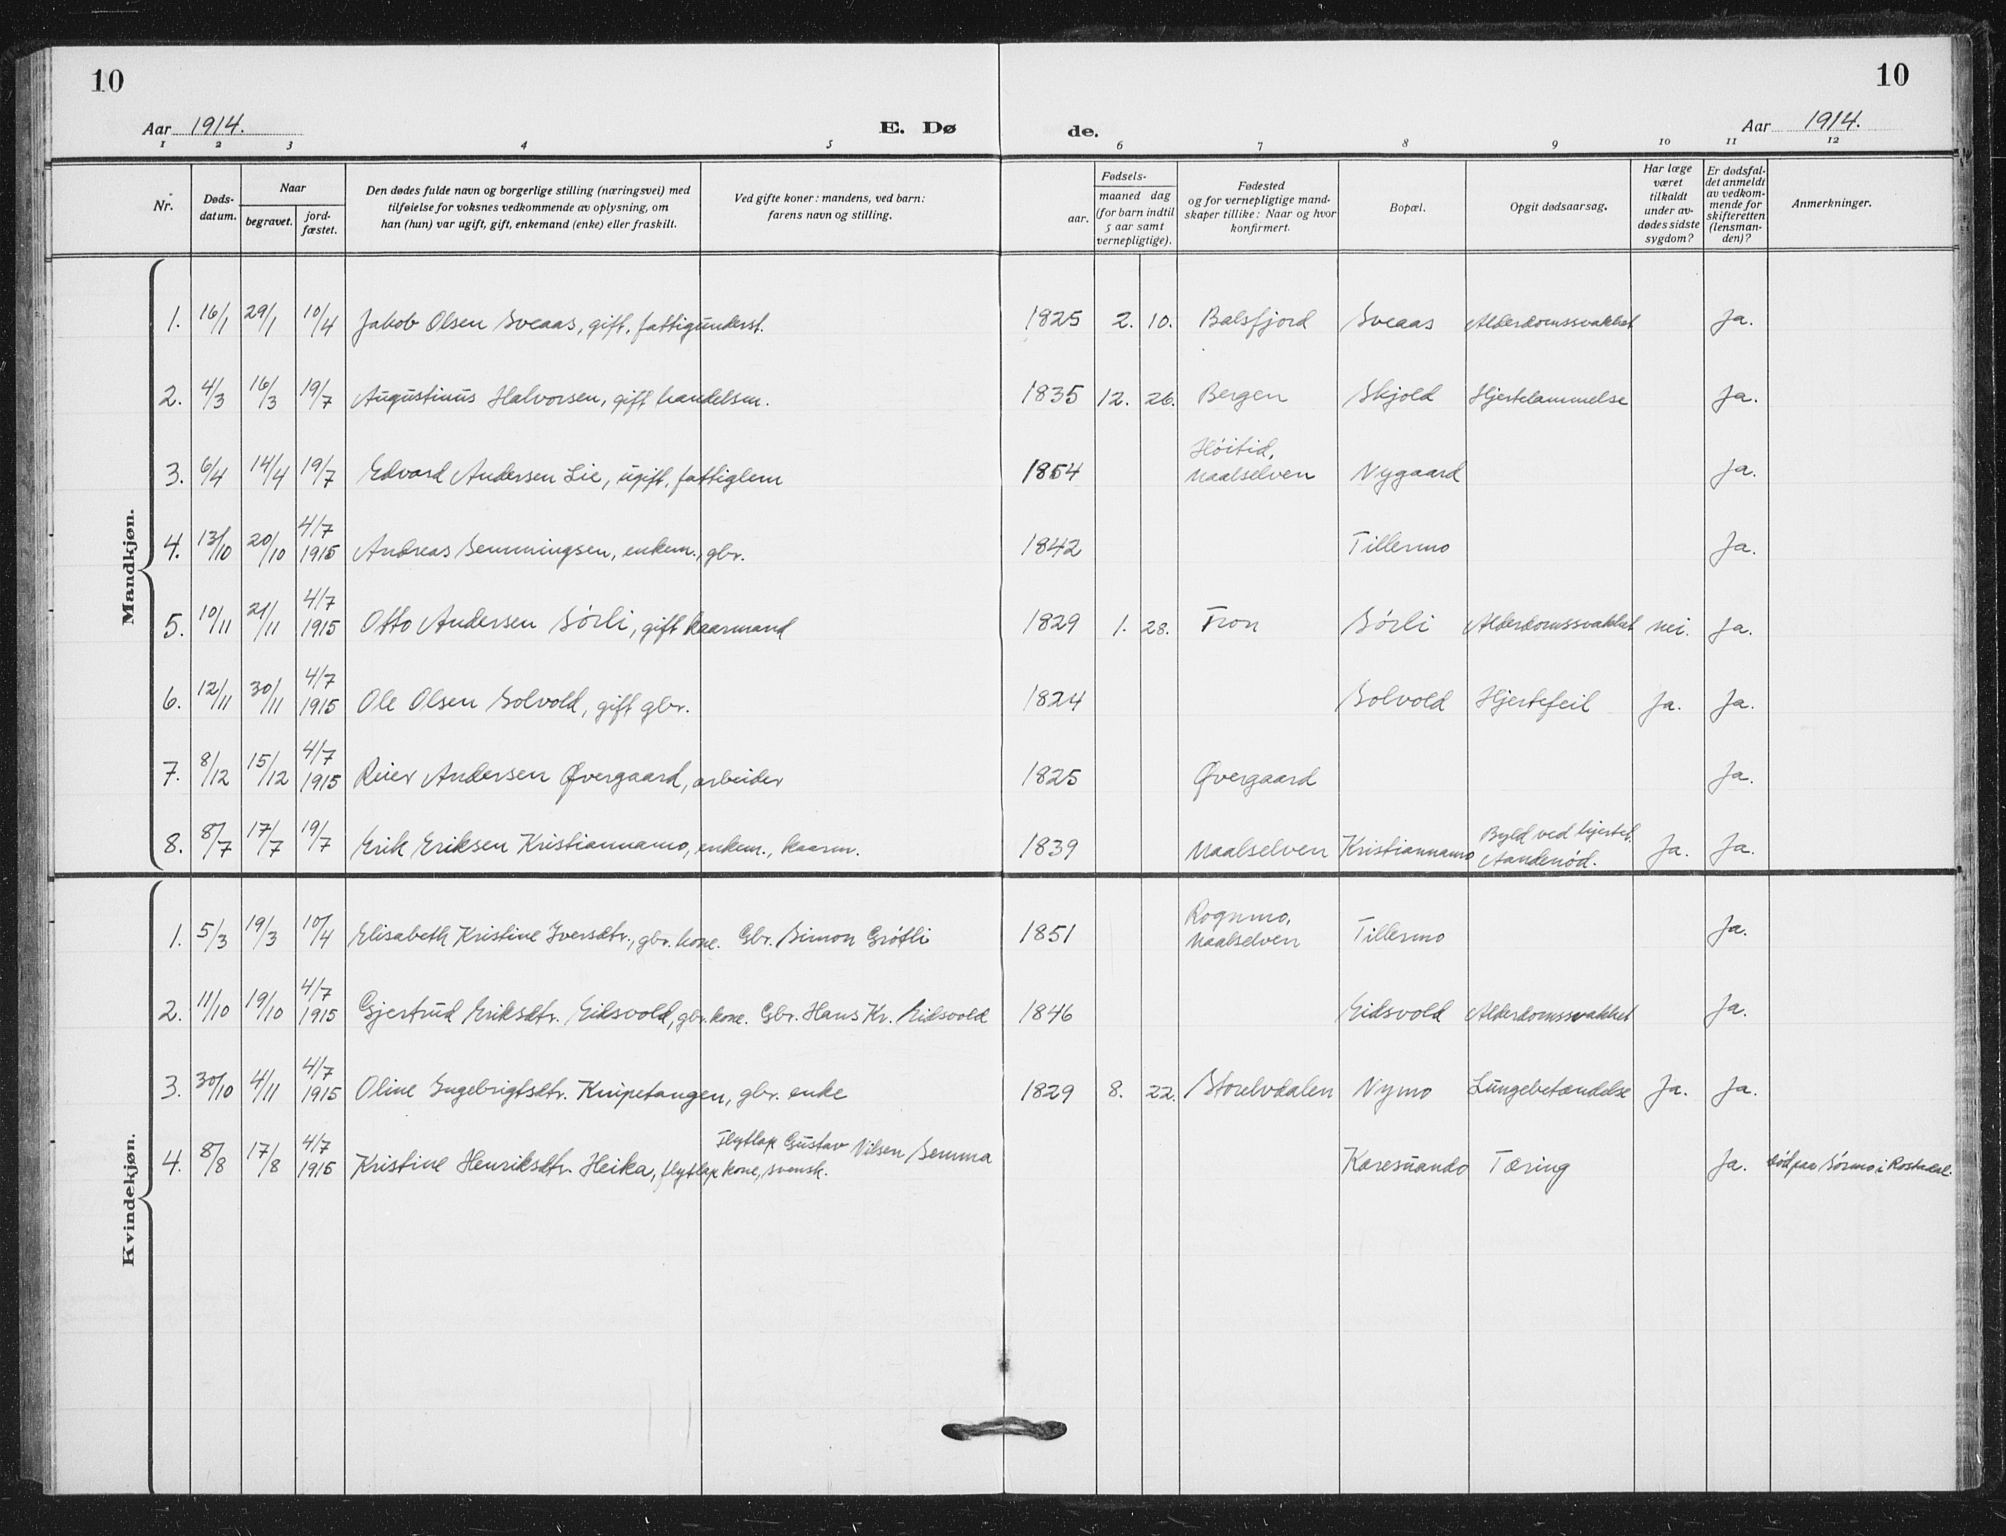 10
10
Aar 1914.
E. Dø
de.
Aar 1914.
1 2 3 4 5 6 7 8 9 10 11 12
Nr.
Døds-
datum.
Naar
begravet.
jord-
fæstet.
Den dødes fulde navn og borgerlige stilling (næringsvei) med
tilføielse for voksnes vedkommende av oplysning, om
han (hun) var ugift, gift, enkemand (enke) eller fraskilt.
Ved gifte koner: mandens, ved barn:
farens navn og stilling.
Fødsels-
aar.
maaned dag
(for barn indtil
5 aar samt
vernepligtige).
Fødested
og for vernepligtige mand-
skaper tillike: Naar og hvor
konfirmert.
Bopæl.
Opgit dødsaarsag.
Har læge
været
tilkaldt
under av-
dødes sidste
sygdom?
Er dødsfal-
det anmeldt
av vedkom-
mende for
skifteretten
(lensman-
den)?
Anmerkninger.
Mandkjøn.
1. 16/1 29/1 10/4 Jakob Olsen Sveaas, gift, fattigunderst. 1825 2. 10. Balsfjord Sveaas Alderdomssvakhet Ja.
2. 4/3 16/3 19/7 Augustinus Halvorsen, gift handelsm. 1835 12. 26. Bergen Skjold Hjertelammelse Ja.
Høitid,
3. 6/4 14/4 19/7 Edvard Andersen Lie, ugift, fattiglem 1854 Maalselven Nygaard Ja.
4/7
4. 13/10 20/10 1915 Andreas Semmingsen, enkem., gbr. 1842 Tillermo Ja.
4/7
5. 10/11 21/11 1915 Otto Andersen Sørli, gift kaarmand 1829 1. 28. Fron Sørli Alderdomssvakhet nei. Ja.
4/7
6. 12/11 30/11 1915 Ole Olsen Solvold, gift gbr. 1824 Solvold Hjertefeil Ja. Ja.
4/7
7. 8/12 15/12 1915 Reier Andersen Øvergaard, arbeider 1825 Øvergaard Ja.
Byld ved hjertet.
8. 8/7 17/7 19/7 Erik Eriksen Kristiannamo, enkem., kaarm. 1839 Maalselven Kristiannamo Aandenød. Ja. Ja.
Kvindekjøn.
Rognmo,
1. 5/3 19/3 10/4 Elisabeth Kristine Iversdtr., gbr. kone. Gbr. Simon Grøtli 1851 Maalselven Tillermo Ja.
4/7
2. 11/10 19/10 1915 Gjertrud Eriksdtr. Eidsvold, gbr. kone. Gbr. Hans Kr. Eidsvold 1846 Eidsvold Alderdomssvakhet Ja.
4/7
3. 30/10 4/11 1915 Oline Engebrigtsdtr. Knipetangen, gbr. enke 1829 8. 22. Storelvdalen Nymo Lungebetændelse Ja. Ja.
4/7 Flytlap Gustav Nilsen Semma
4. 8/8 17/8 1915 Kristine Henriksdtr. Heika, flytlap kone, svensk. Karesuando Tæring Ja. død paa Sørmo i Rostadal.